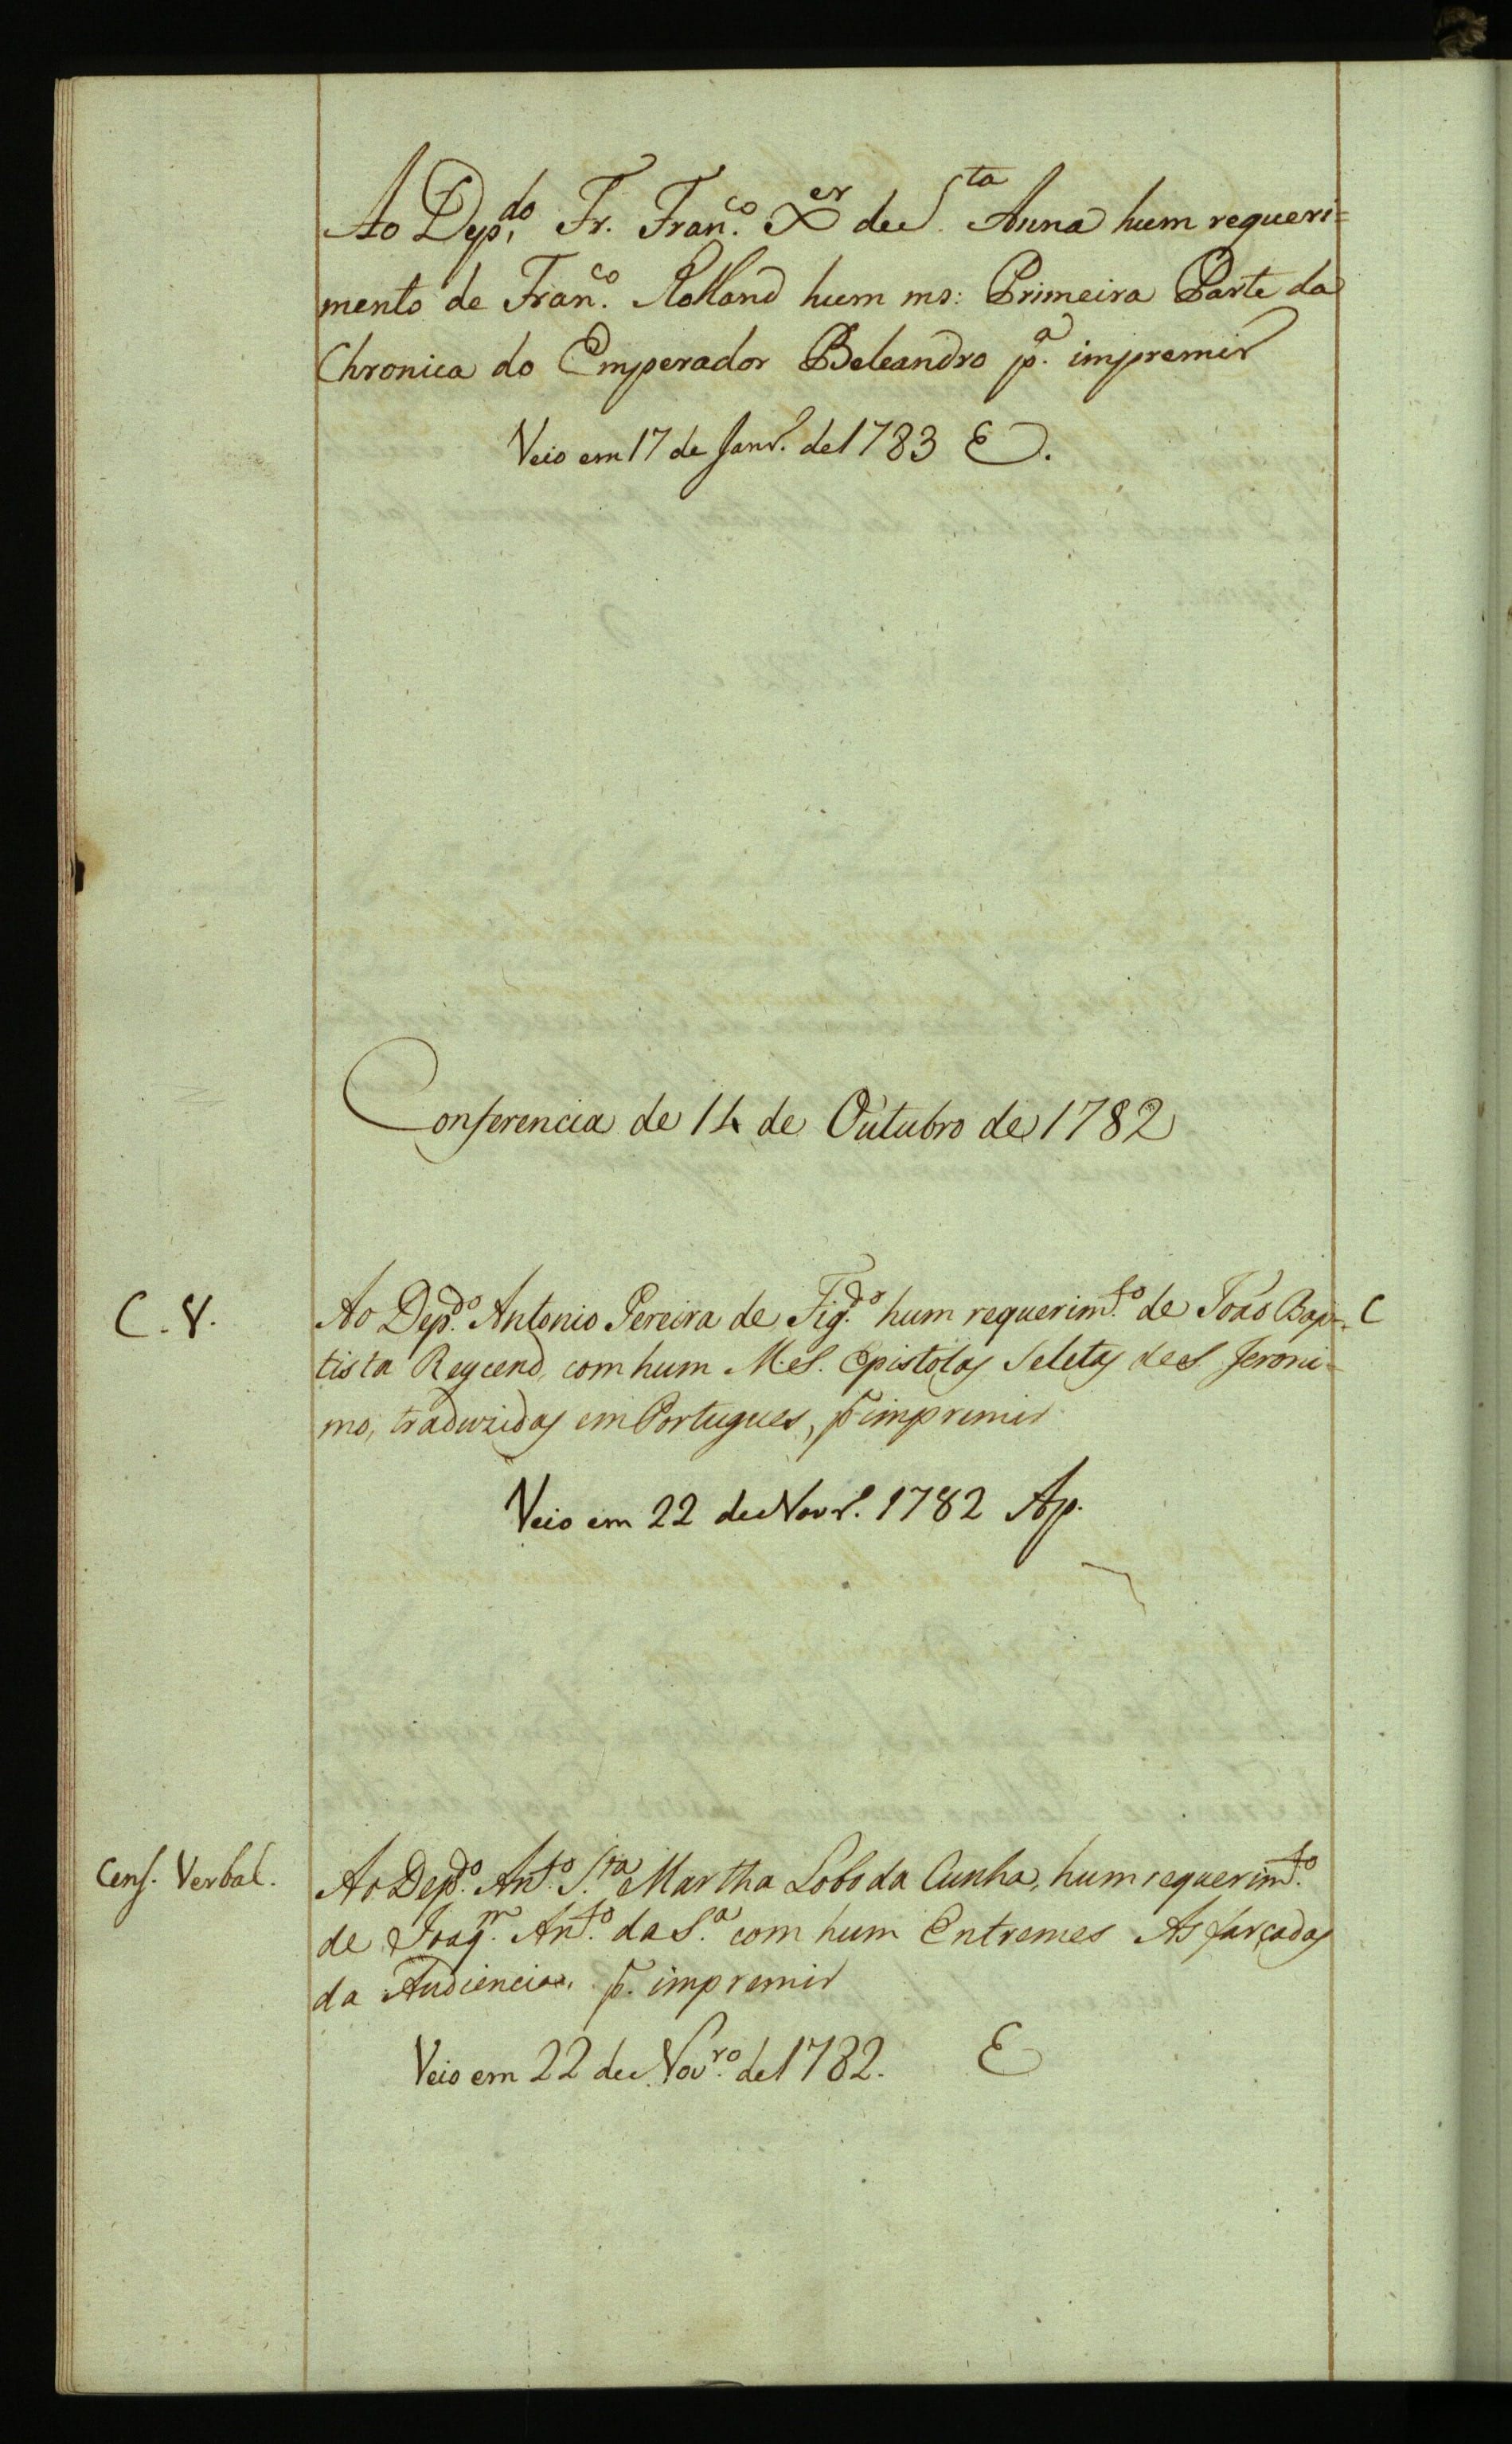 Ao Dep.do Fr. Fran.co X.er de S.ta Anna hum requeri=
mento de Fran.co Rolland hum ms: Primeira Parte da
Chronica do Emperador Beleandro p.a impremir
Veio em 17 de Janr.o de 1783 E.
Conferencia de 14 de Outubro de 1782
C. V.
Ao Dep.do Antonio Pereira de Fig.do hum requerim.to de João Bap- C
tista Reycend, com hum M.S. Epistolas Seletas de S. Jeroni=
mo, traduzidas em Portugues, p.a imprimir
Veio em 22 de Novr.o 1782 Ap.
Cens. Verbal.
Ao Dep.do An.to S.ta Martha Lobo da Cunha, hum requerim.to
de Joaq.m An.to da S.a com hum Entremes As farçadas
da Audiencia, p.a impremir
Veio em 22 de Nov.ro de 1782. E